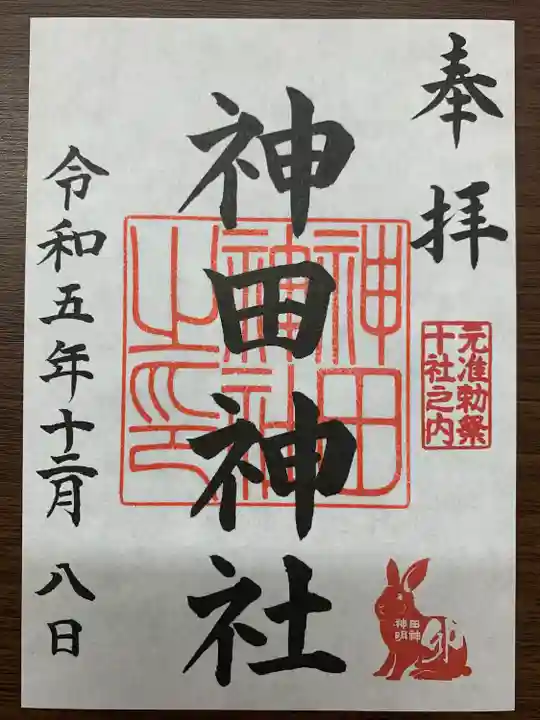 奉拝
元准勅祭
十社之内
神田神社
神田
神社
之印
田神
神明
卯
令和五年十二月八日